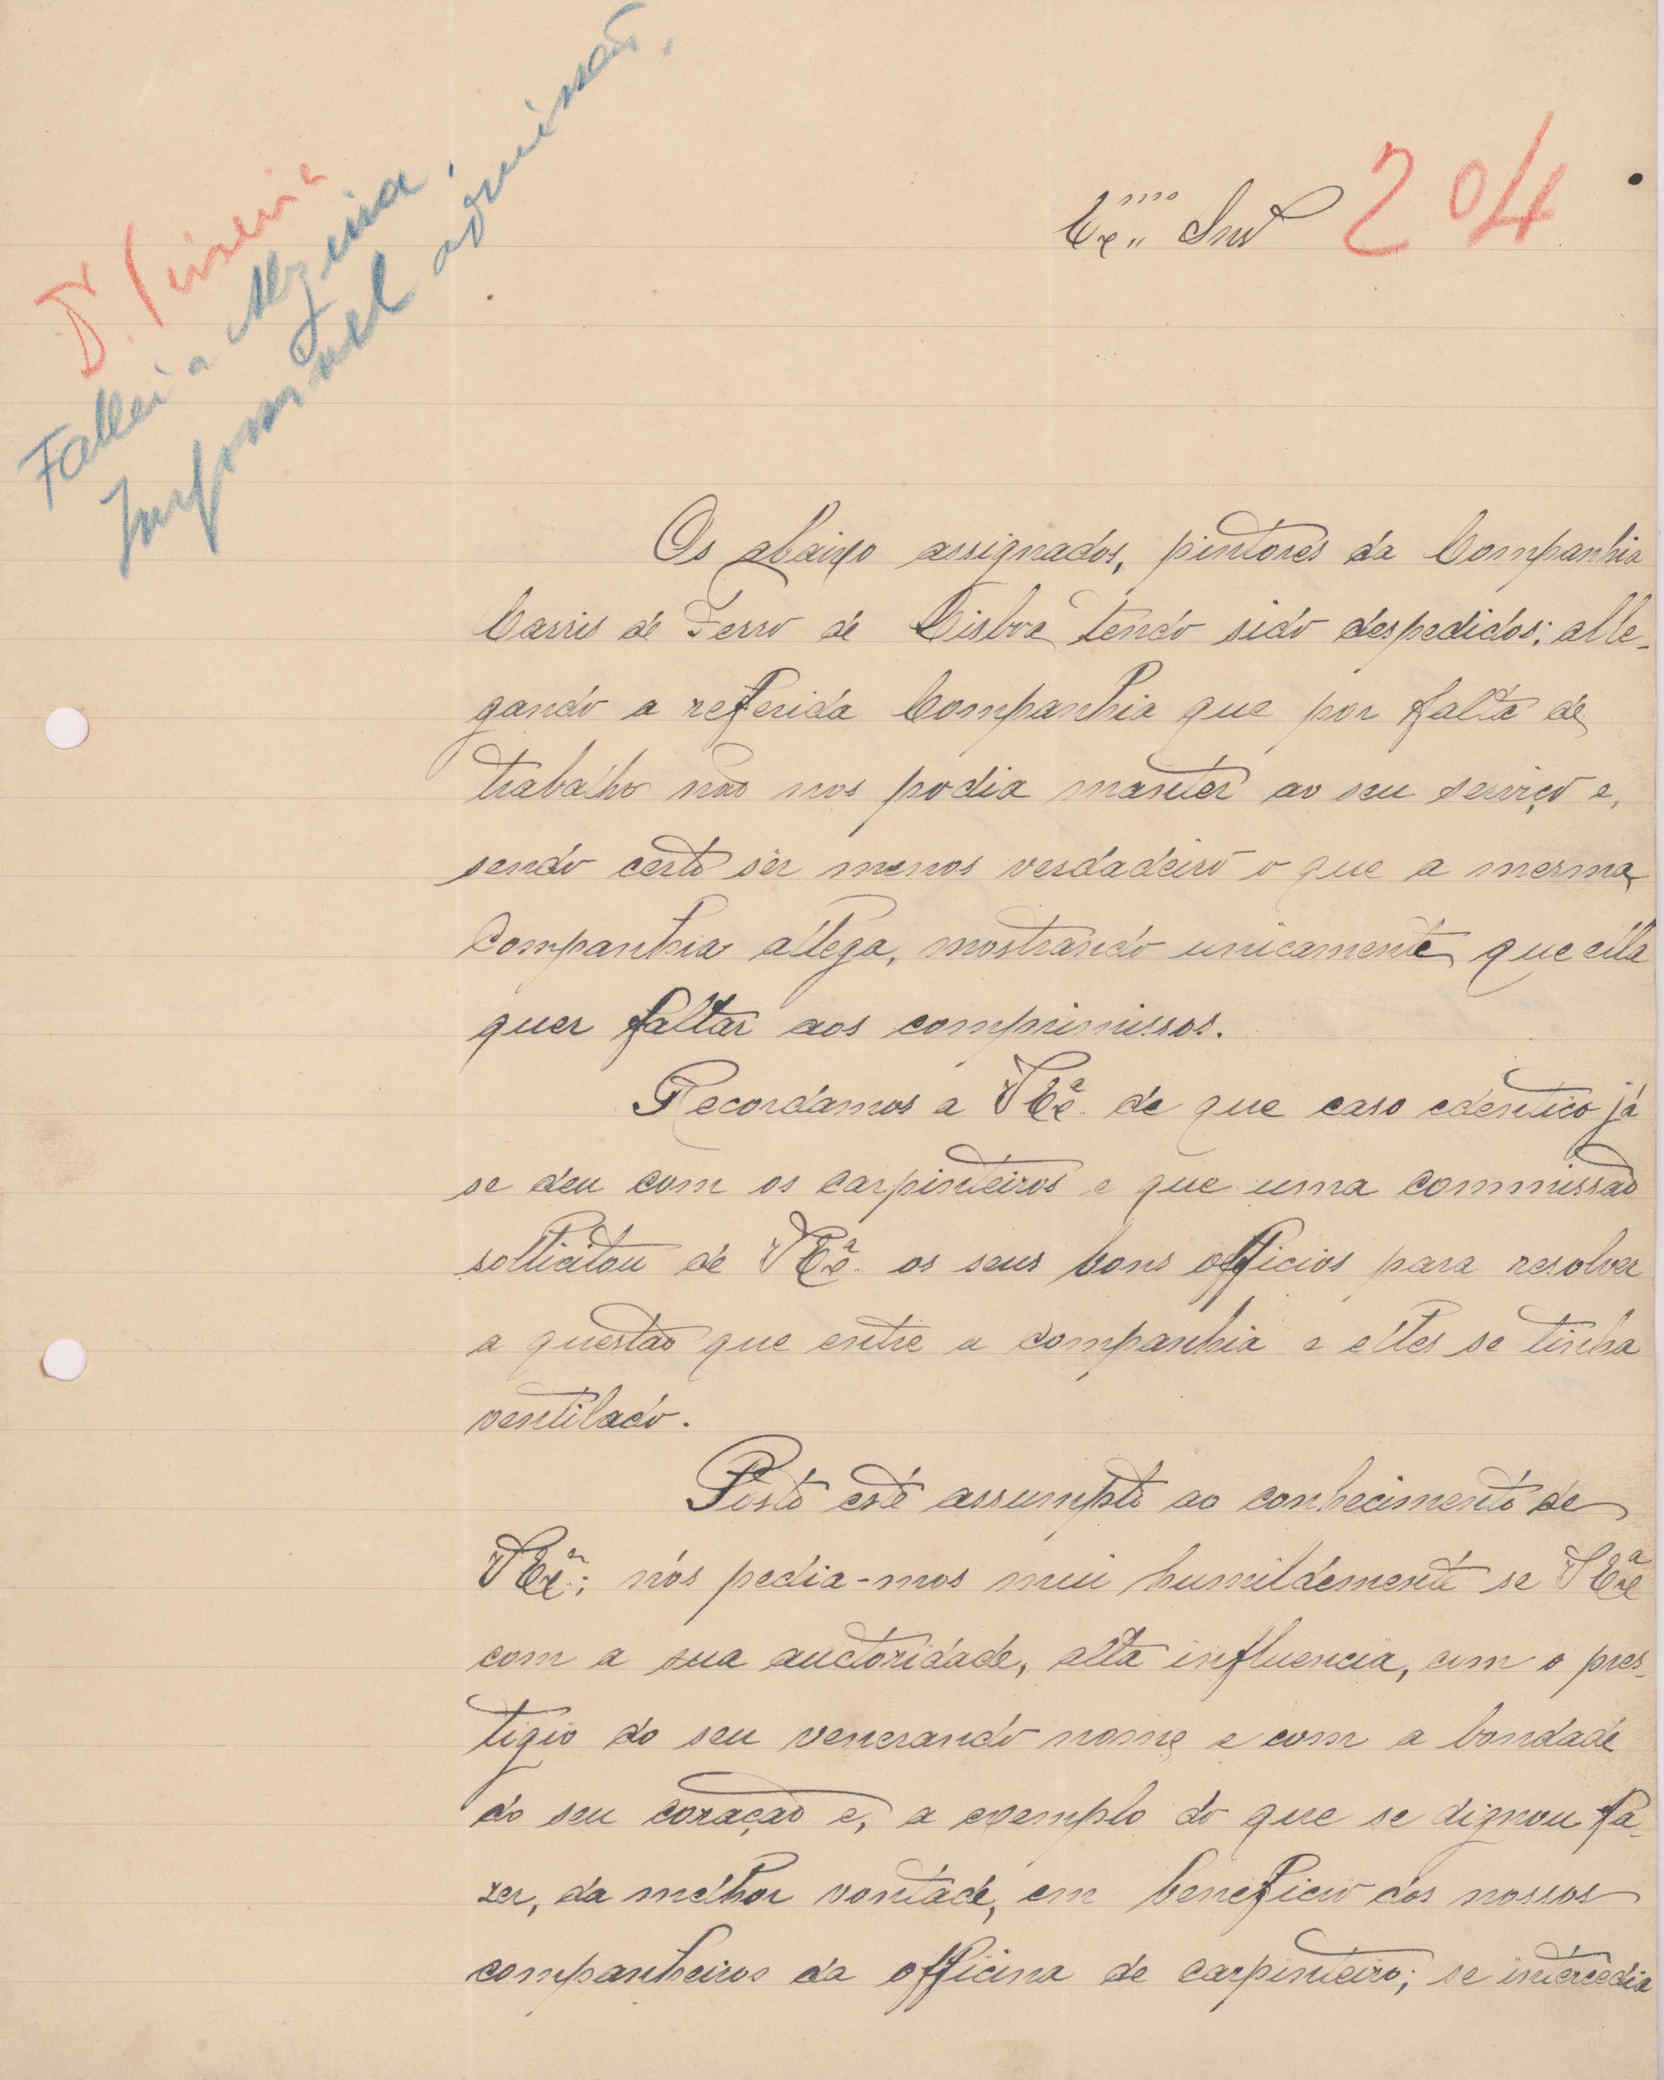 204
Ex.mo Snr
Fallei a
Os abaixo assignados, pintores da Companhia
Carris de Ferro de Lisboa tendo sido despedidos; alle-
gando a referida Companhia que por falta de
trabalho não nos podia manter ao seu serviço e,
sendo certo sêr menos verdadeiro o que a mesma
Companhia allega, mostrando unicamente que ella
quer faltar aos comprimissos.
Recordamos a V Ex.ª de que caso edentico já
se deu com os carpinteiros e que uma commissão
sollicitou de V Ex.ª os seus bons officios para resolver
a questão que entre a companhia e elles se tinha
ventilado.
Posto este assumpto ao conhecimento de
V Ex.ª; nós pedia-mos mui humildemente se V Ex.ª
com a sua auctoridade, alta influencia, com o pres-
tigio do seu venerando nome e com a bondade
do seu coração e, a exemplo do que se dignou fa-
zer, da melhor vontade, em beneficio dos nossos
companheiros da officina de carpinteiro; se intercedia